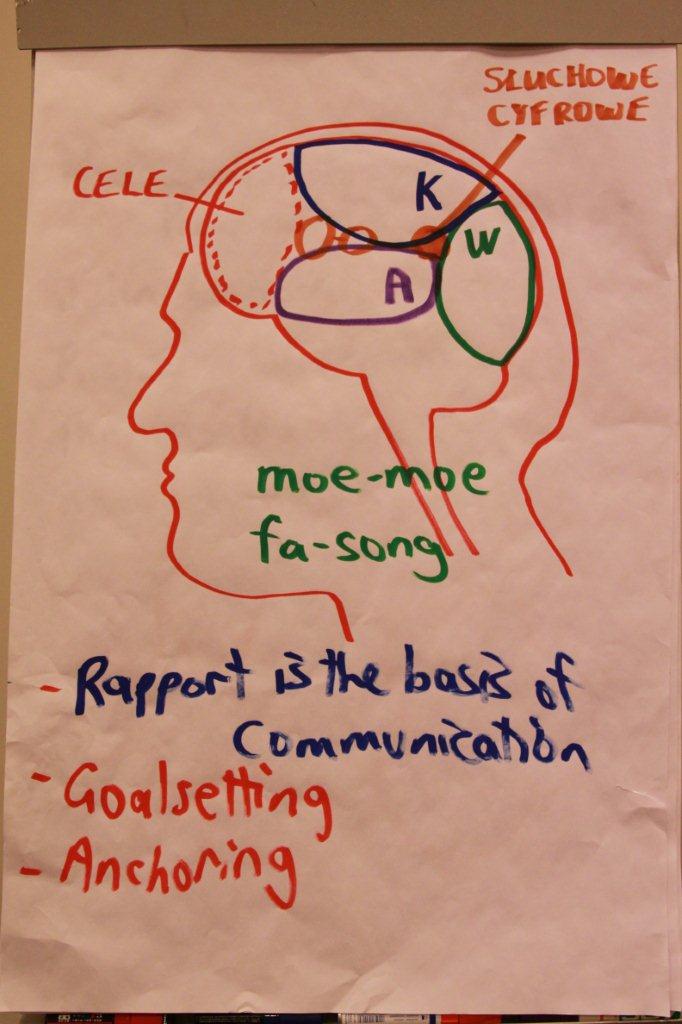 SŁUCHOWE
CYFROWE
CELE
K
W
A
moe-moe
fa-song
- Rapport is the basis of
Communication
- Goalsetting
- Anchoring